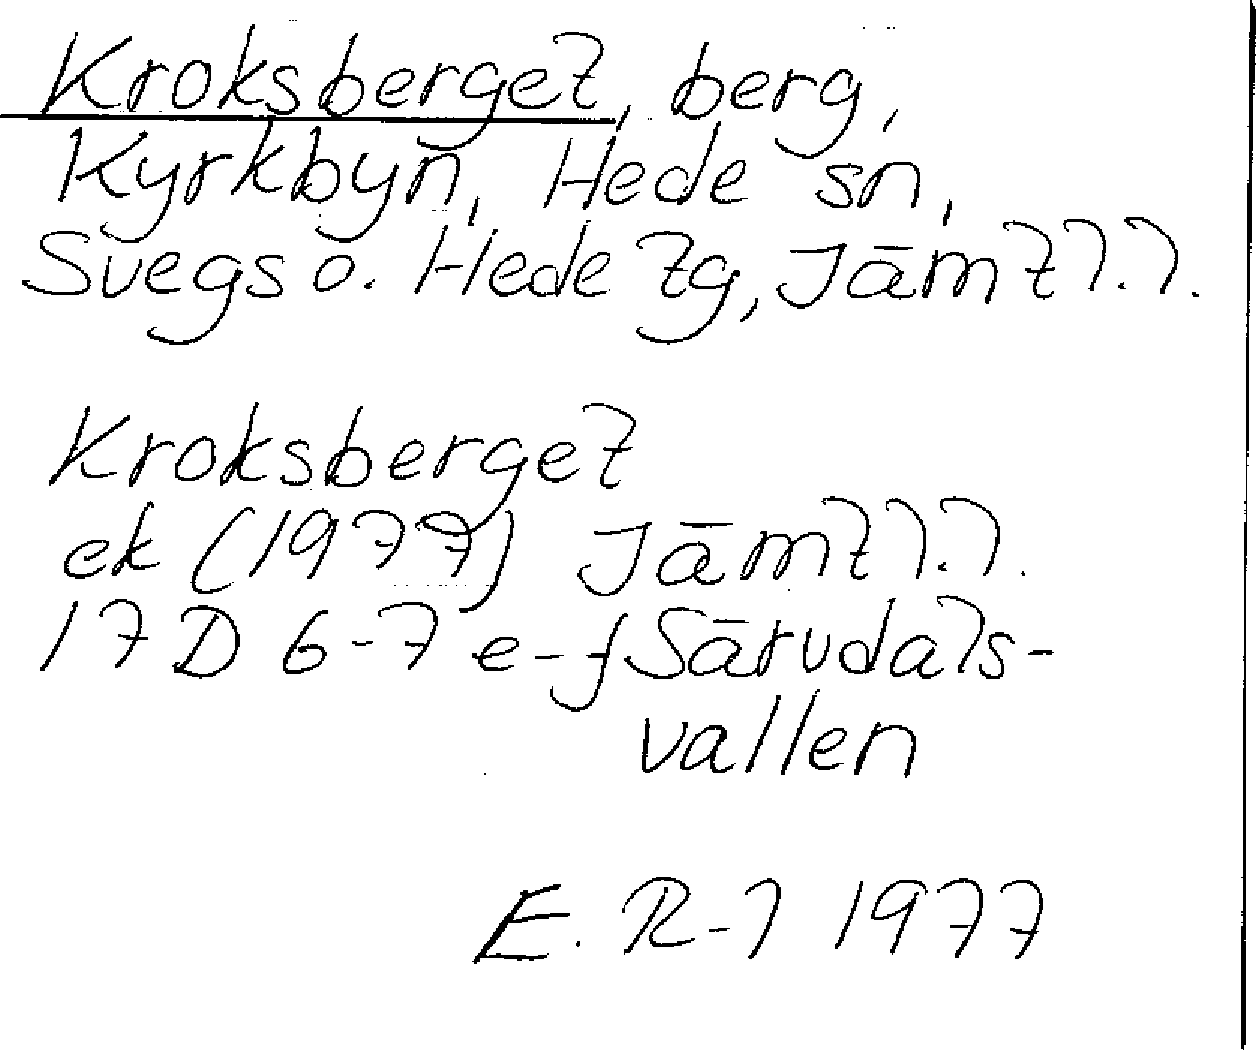 Kroksberget, berg,
Kyrkbyn, Hede sn,
Svegs o. Hede tg, Jämtl.l.
Kroksberget
ek (1977) Jämtl.l.
17 D 6-7 e-f Särvdals-
vallen
E. R-l 1977